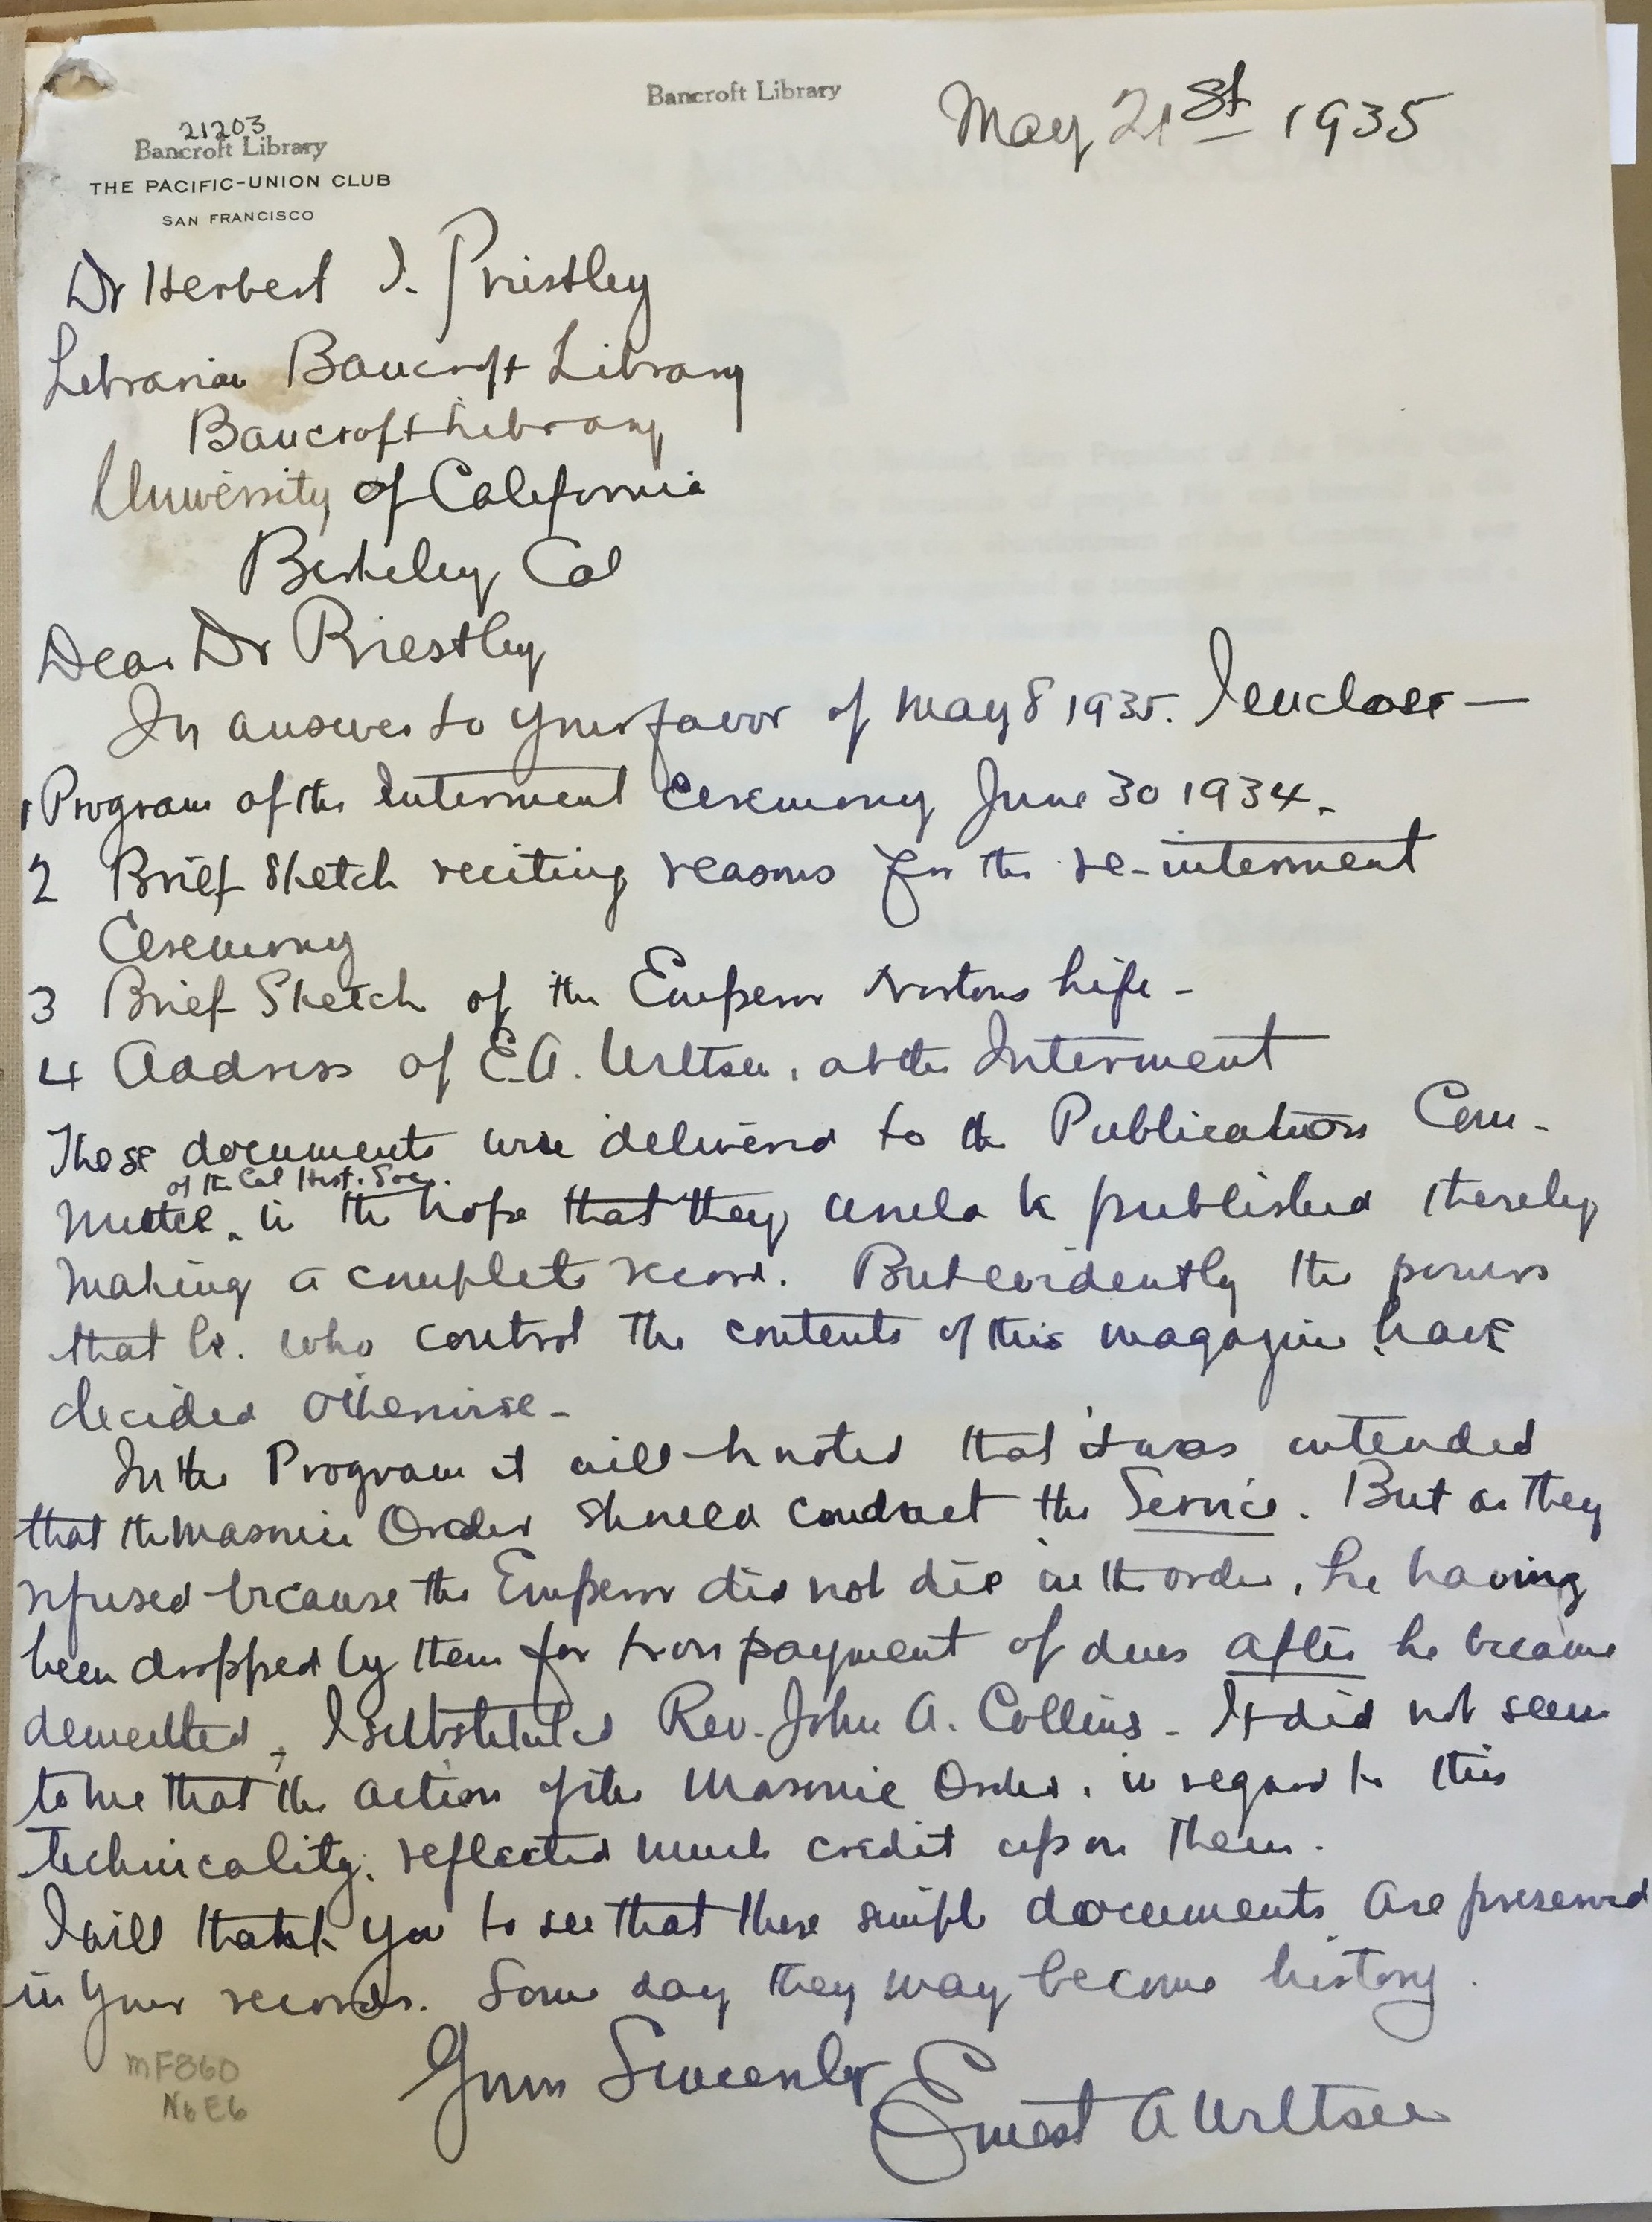 Bancroft Library
May 21st 1935
21203
Bancroft Library
THE PACIFIC-UNION CLUB
SAN FRANCISCO
Dr Herbert I. Priestley
Librarian Bancroft Library
Bancroft Library
University of California
Berkeley Cal
Dear Dr Priestley
In answer to your favor of May 8 1935. I enclose —
1 Program of the Interment Ceremony June 30 1934.
2 Brief Sketch reciting reasons for the re-interment
Ceremony
3 Brief Sketch of the Emperor Nortons Life -
4 Address of E.A. Wiltsee, at the Interment
These documents were delivered to the Publications Com-
of the Cal Hist. Soc.
mittee, in the hope that they would be published thereby
making a complete record. But evidently the powers
that be. who control the contents of this magazine have
decided otherwise -
In the Program it will be noted that it was intended
that the Masonic Order should conduct the Service. But as they
refused because the Emperor did not die in the order, he having
been dropped by them for non payment of dues after he became
demented, I substituted Rev. John A. Collins - It did not seem
to me that the action of the Masonic Order, in regard to this
technicality, reflected much credit upon them.
I will thank you to see that these simple documents are preserved
in your records. Some day they may become history.
Yours Sincerely
Ernest A Wiltsee
mF860
N6E6